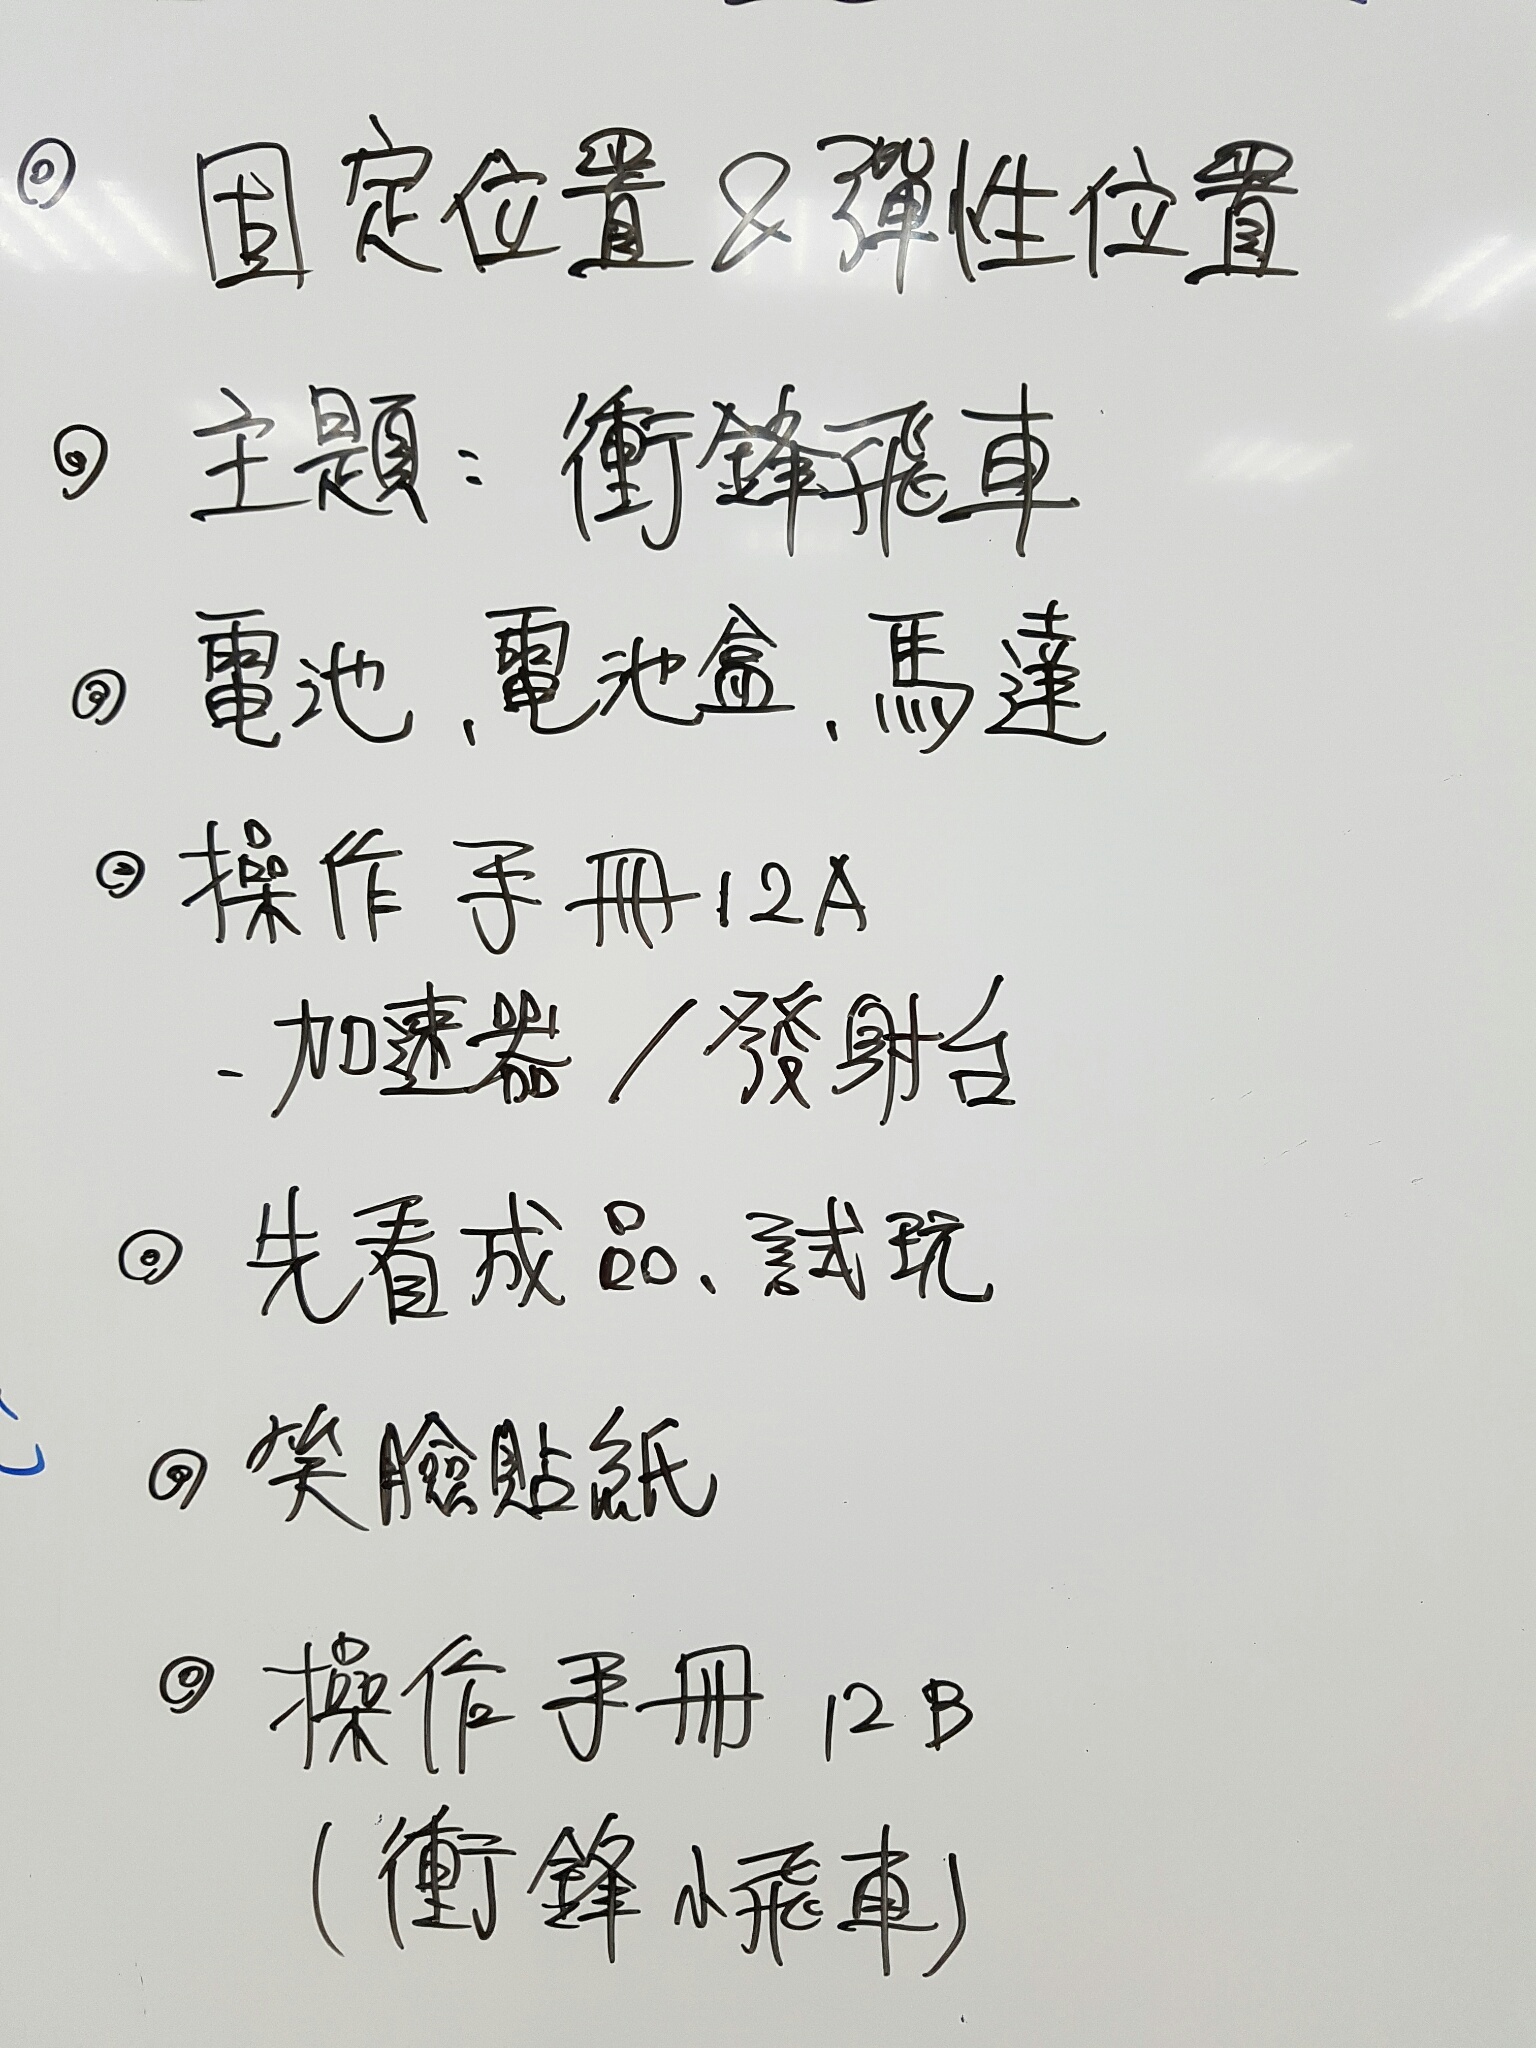 ◎ 固定位置 & 彈性位置
◎ 主題：衝鋒飛車
◎ 電池、電池盒、馬達
◎ 操作手冊12A
- 加速器／發射台
◎ 先看成品、試玩
◎ 笑臉貼紙
◎ 操作手冊 12B
(衝鋒小飛車)